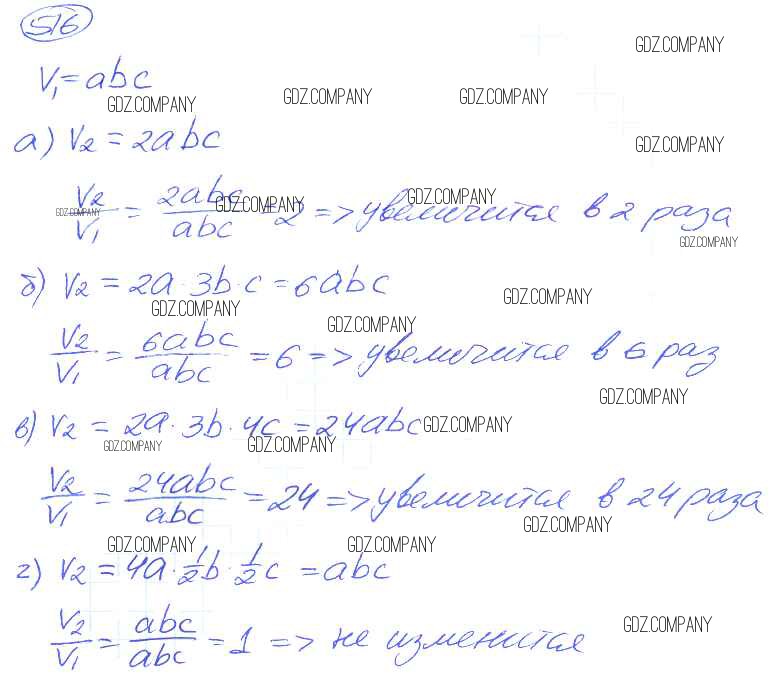 516
GDZ.COMPANY
V₁ = abc
GDZ.COMPANY GDZ.COMPANY GDZ.COMPANY
а) V₂ = 2abc
GDZ.COMPANY
V₂/V₁ = 2abc/abc = 2 => увеличится в 2 раза
GDZ.COMPANY GDZ.COMPANY GDZ.COMPANY
GDZ.COMPANY
б) V₂ = 2a · 3b · c = 6abc
GDZ.COMPANY GDZ.COMPANY
GDZ.COMPANY
V₂/V₁ = 6abc/abc = 6 => увеличится в 6 раз
GDZ.COMPANY
в) V₂ = 2a · 3b · 4c = 24abc
GDZ.COMPANY
GDZ.COMPANY GDZ.COMPANY
V₂/V₁ = 24abc/abc = 24 => увеличится в 24 раза
GDZ.COMPANY
GDZ.COMPANY GDZ.COMPANY
г) V₂ = 4a · 1/2b · 1/2c = abc
GDZ.COMPANY
V₂/V₁ = abc/abc = 1 => не изменится